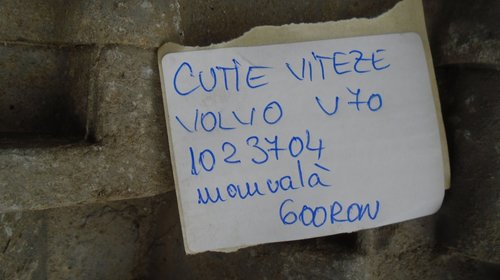 CUTIE VITEZE
VOLVO V70
1023704
manuală
600RON